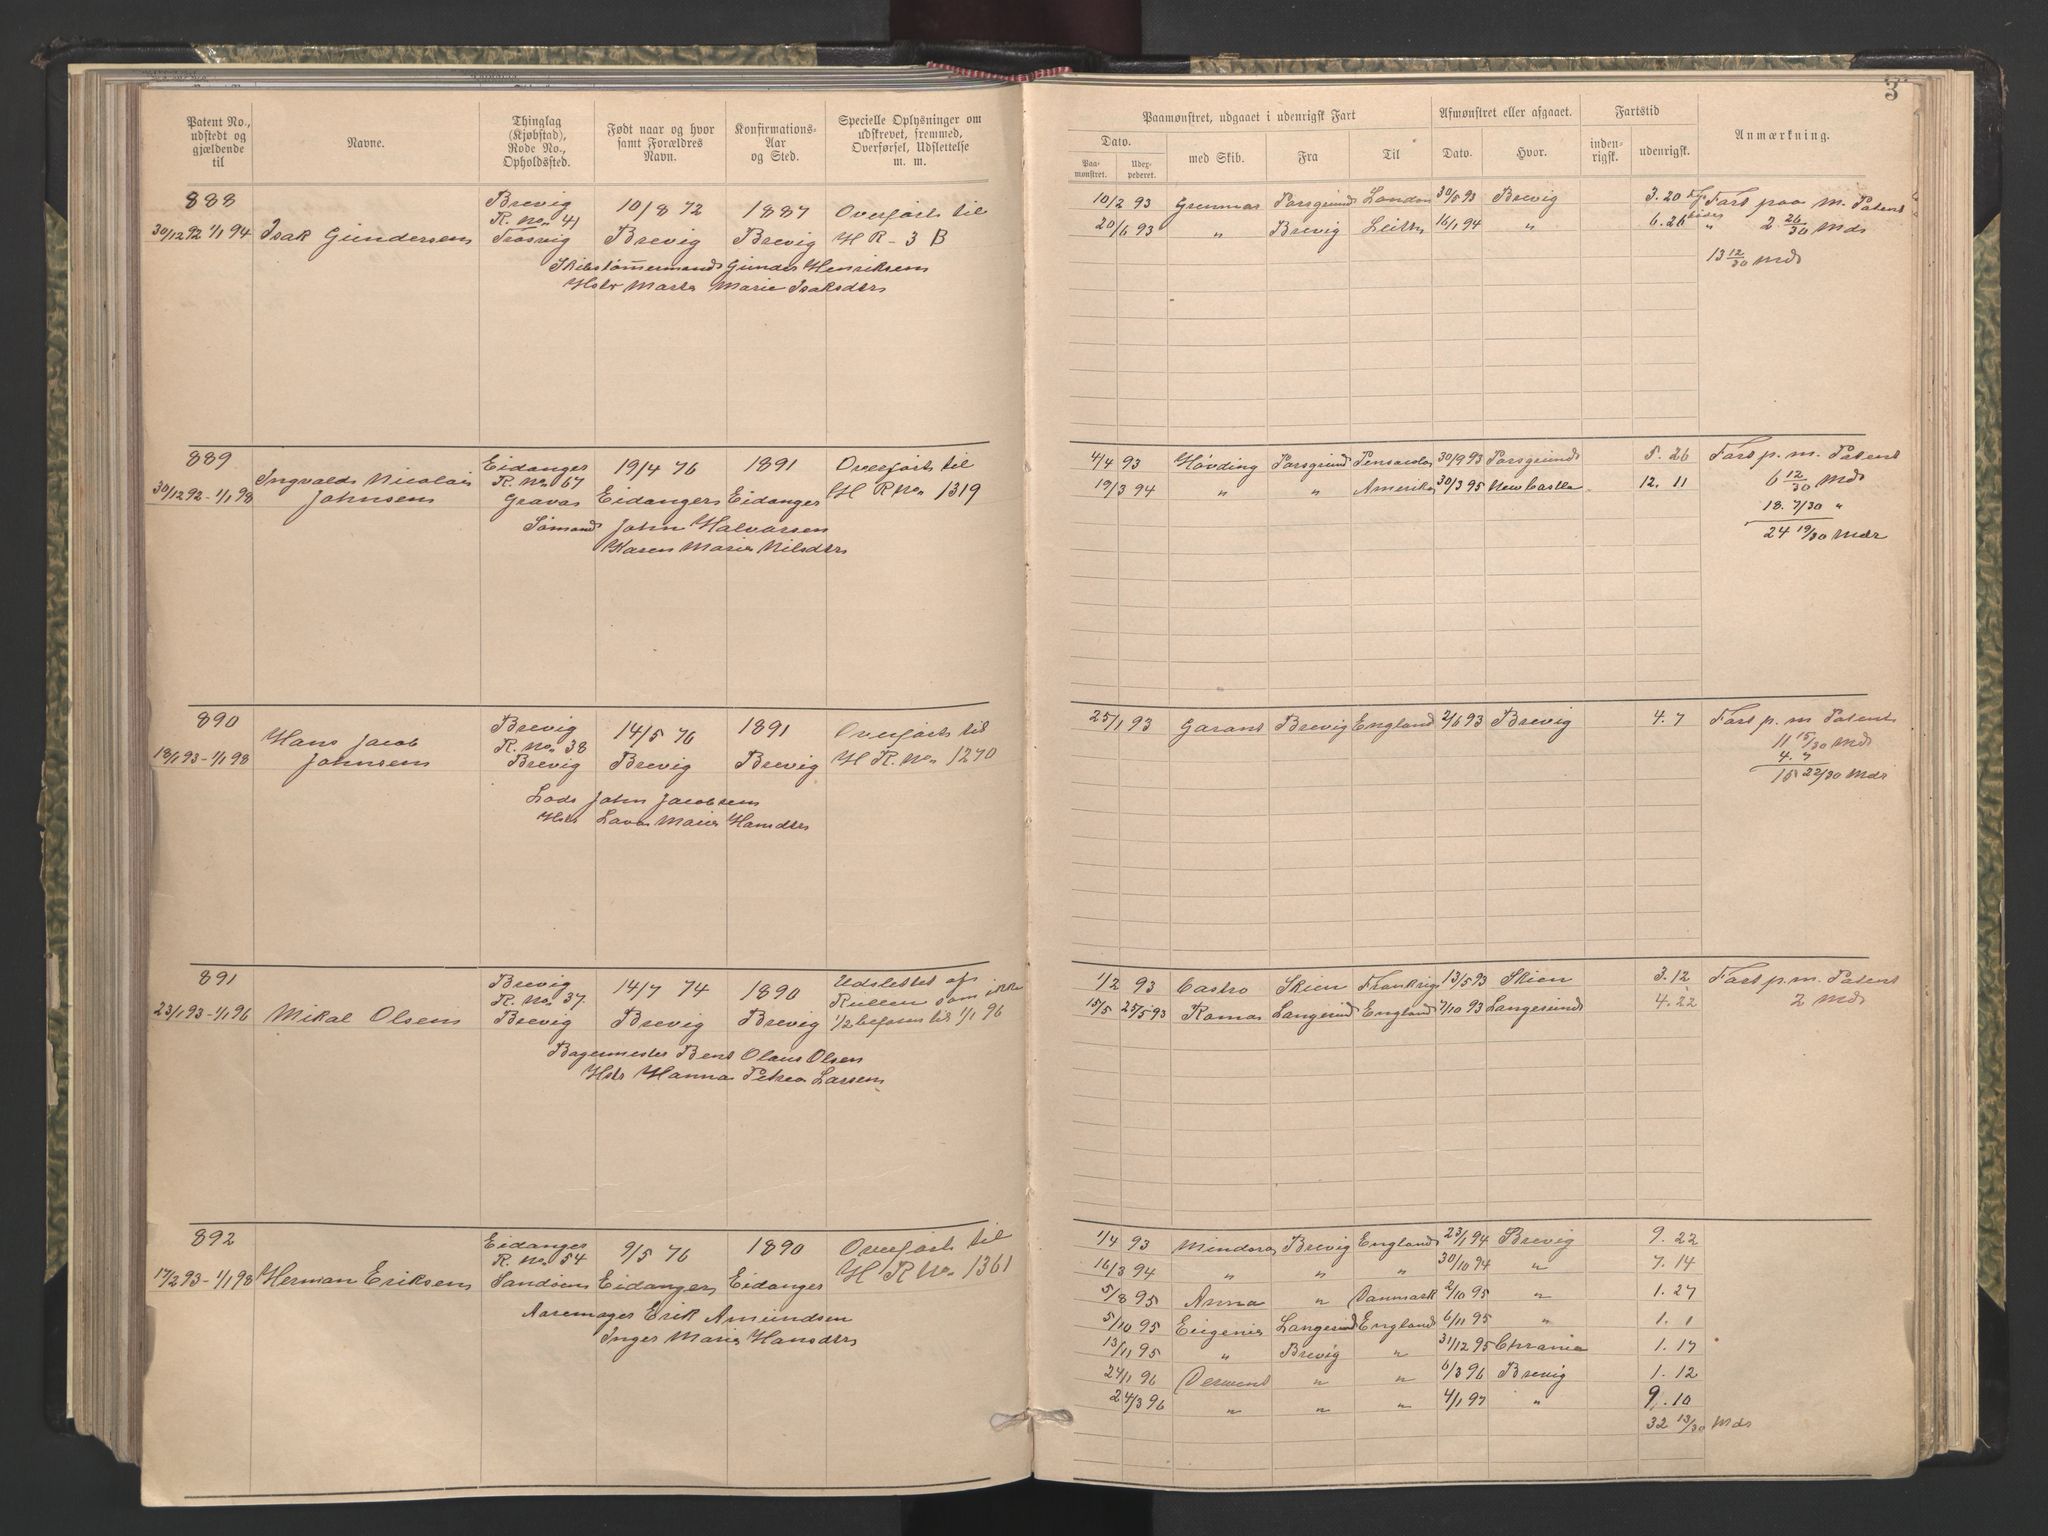 Patent No., udstedt og gjældende til
Navne.
Thinglag (Kjøbstad), Rode No., Opholdssted.
Født naar og hvor samt Forældres Navn.
Konfirmations-Aar og Sted.
Specielle Oplysninger om udskrevet, fremmed, Overførsel, Udslettelse m. m.
888
30/12 92 - 1/1 94
Isak Gundersen
Brevig
R. No. 41
Trosvig
10/8 72
Brevig
1887
Brevig
Overført til
H R - 3 B
Skibstømmermand Gunder Henriksen
Hstr Marte Marie Isaksdtr
889
30/12 92 - 1/1 98
Ingvald Nicolai
Johnsen
Eidanger
R. No. 67
Grava
19/4 76
Eidanger
1891
Eidanger
Overført til
H R No. 1319
Sømand John Halvorsen
Karen Marie Nilsdtr
890
18/1 93 - 1/1 98
Hans Jacob
Johnsen
Brevig
R. No. 38
Brevig
14/5 76
Brevig
1891
Brevig
Overført til
H R. No. 1270
Lods John Jacobsen
Hstr Lava Marie Hansdtr
891
23/1 93 - 1/1 96
Mikal Olsen
Brevig
R. No. 37.
Brevig
14/7 74
Brevig
1890
Brevig
Udslettet af
Rullen som ikke
1/2 befaren til 1/1 96
Bagermester Bent Olaus Olsen
Hstr Hanna Petrea Larsen
892
17/2 93 - 1/1 98
Herman Eriksen
Eidanger
R. No. 54
Sandøen
9/5 76
Eidanger
1890
Eidanger
Overført til
H R No. 1361
Aaremager Erik Amundsen
Inger Marie Hansdtr
3
Paamønstret, udgaaet i udenrigsk Fart
Afmønstret eller afgaaet.
Fartstid
Anmærkning.
Dato.
Paa-mønstret.
Udex-pederet.
med Skib.
Fra
Til
Dato.
Hvor.
inden-rigsk.
udenrigsk.
10/2 93 Grenmar Porsgrund London 30/5 93 Brevig 3. 20 Fart paa m. Patent
20/6 93 " Brevig Leith 16/1 94 " 6. 26 " 2 26/30 Mdr
13 12/30 Mdr
4/4 93 Høvding Porsgrund Pensacola 30/9 93 Porsgrund 5. 26 Fart p. m. Patent
19/3 94 " " Amerika 30/3 95 New Castle 12. 11 6 12/30 Mdr
18. 7/30 "
24 19/30 Mdr
25/1 93 Garant Brevig England 2/6 93 Brevig 4. 7 Fart p. m Patent
11 15/30 Mdr
4. 7
15 22/30 Mdr
1/2 93 Castro Skien Frankrig 13/5 93 Skien 3. 12 Fart p. m. Patent
15/5 25/5 93 Roma Langesund England 7/10 93 Langesund 4. 22 2 Mdr
1/4 93 Mindora Brevig England 23/1 94 Brevig 9. 22
16/3 94 " " " 30/10 94 " 7. 14
5/8 95 Anna " Danmark 2/10 95 " 1. 27
5/10 95 Eugenie Langesund England 6/11 95 " 1. 1
13/11 95 " Brevig " 31/12 95 Chrania 1. 17
24/1 96 Derwent " " 6/3 96 Brevig 1. 12
24/3 96 " " " 4/1 97 " 9. 10
32 13/30 Mdr